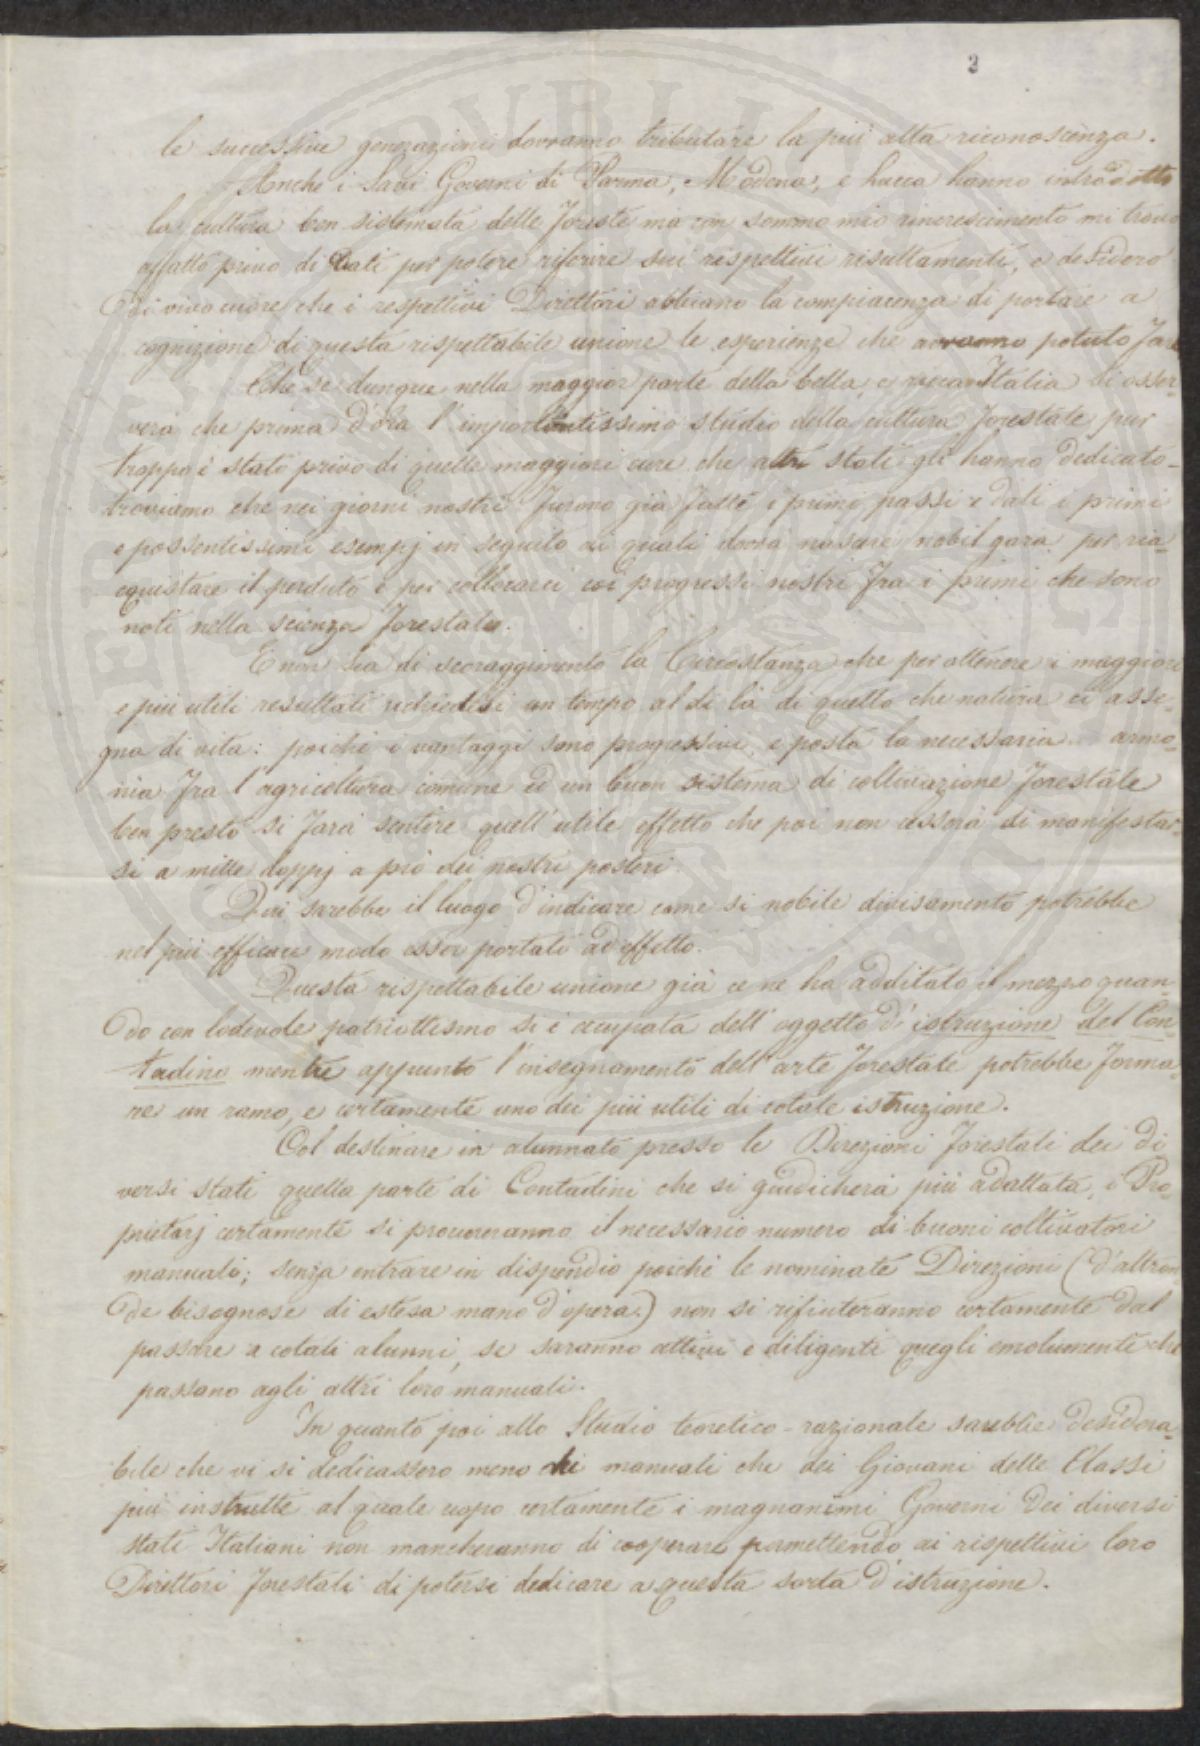 2
le successive generazioni dovranno tributare la più alta riconoscenza.
Anche i Savi Governi di Parma, Modena, e Lucca hanno introdotto
la cultura ben sistemata delle foreste ma con sommo mio rincrescimento mi trovo
affatto privo di Dati per potere riferire sui rispettivi risultamenti, e desidero
di vivo cuore che i respettivi Direttori abbiano la compiacenza di portare a
cognizione di questa rispettabile unione le esperienze che avranno potuto fare
Che se dunque nella maggior parte della bella, e ricca Italia si osser-
verà che prima d'ora l'importantissimo studio della cultura forestale pur
troppo è stato privo di quelle maggiori cure che altri stati gli hanno dedicato-
troviamo che nei giorni nostri furono già fatti i primi passi e dati i primi
e possentissimi esempj in seguito ai quali dovrà nascere nobil gara per ria-
cquistare il perduto e per collocarci coi progressi nostri fra i primi che sono
noti nella scienza forestale.
E non sia di scoraggimento la Circostanza che per ottenere i maggiori
e più utili resultati richiedesi un tempo al di là di quello che natura ci asse-
gna di vita: poichè i vantaggi sono progressivi, e posta la necessaria armo-
nia fra l'agricoltura comune ed un buon sistema di coltivazione forestale
ben presto si farà sentire quell'utile effetto che poi non cesserà di manifestar-
si a mille doppj a prò dei nostri posteri.
Qui sarebbe il luogo d'indicare come sì nobile divisamento potrebbe
nel più efficace modo esser portato ad effetto.
Questa rispettabile unione già ce ne ha additato il mezzo quan-
do con lodevole patriottismo si è occupata dell'oggetto d'istruzione del Con-
tadino mentre appunto l'insegnamento dell'arte forestale potrebbe forma-
re un ramo, e certamente uno dei più utili di cotale istruzione.
Col destinare in alunnato presso le Direzioni forestali dei di
versi stati quella parte di Contadini che si giudicherà più adattata, i Pro-
prietarj certamente si procureranno il necessario numero di buoni coltivatori
manuali; senza entrare in dispendio poichè le nominate Direzioni (d'altron
de bisognose di estesa mano d'opera) non si rifiuteranno certamente dal
passare a cotali alunni, se saranno attivi e diligenti quegli emolumenti che
passano agli altri loro manuali.
In quanto poi allo Studio teoretico-razionale sarebbe desidera-
bile che vi si dedicassero meno dei manuali che dei Giovani delle Classi
più instrutte al quale uopo certamente i magnanimi Governi dei diversi
stati Italiani non mancheranno di cooperare permettendo ai rispettivi loro
Direttori forestali di potersi dedicare a questa sorta d'istruzione.